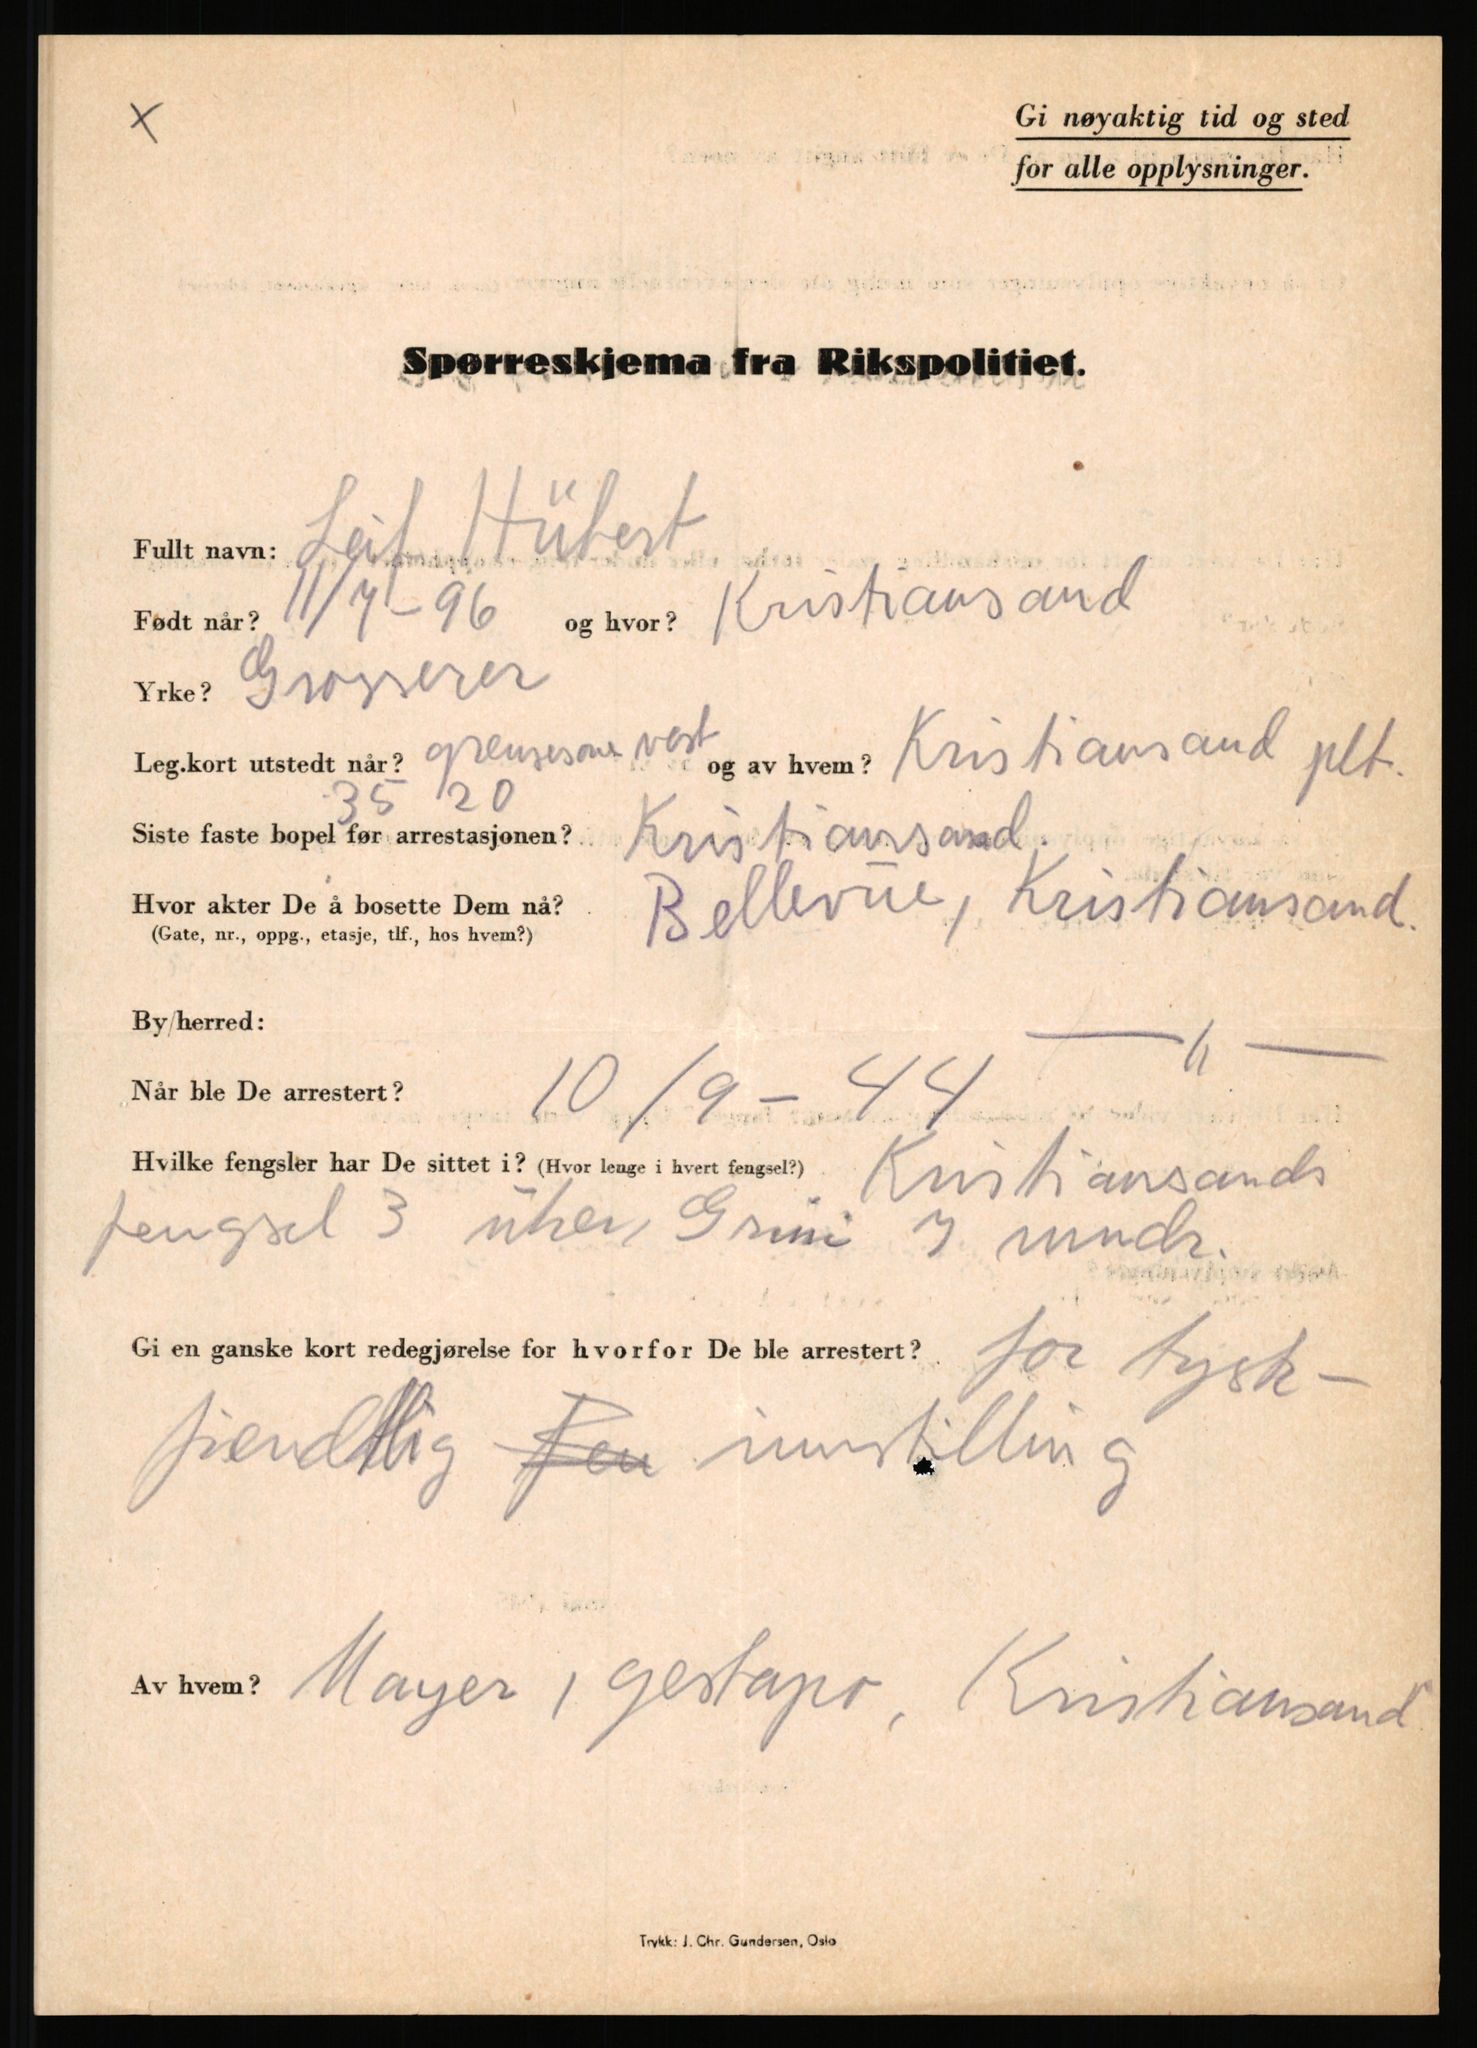 x
Gi nøyaktig tid og sted
for alle opplysninger.
Spørreskjema fra Rikspolitiet.
Fullt navn: Leif Hübert
Født når? 11/7-96 og hvor? Kristiansand
Yrke? Grosserer
Leg.kort utstedt når? grensesone vest og av hvem? Kristiansand plt.
35 20
Siste faste bopel før arrestasjonen? Kristiansand.
Hvor akter De å bosette Dem nå? Bellevue, Kristiansand.
(Gate, nr., oppg., etasje, tlf., hos hvem?)
By/herred: — " —
Når ble De arrestert? 10/9-44
Hvilke fengsler har De sittet i? (Hvor lenge i hvert fengsel?) Kristiansands
fengsel 3 uker, Grini 7 mndr.
Gi en ganske kort redegjørelse for hvorfor De ble arrestert? for tysk-
fiendtlig innstilling
Av hvem? Mayer, gestapo, Kristiansand
Trykk: J. Chr. Gundersen, Oslo